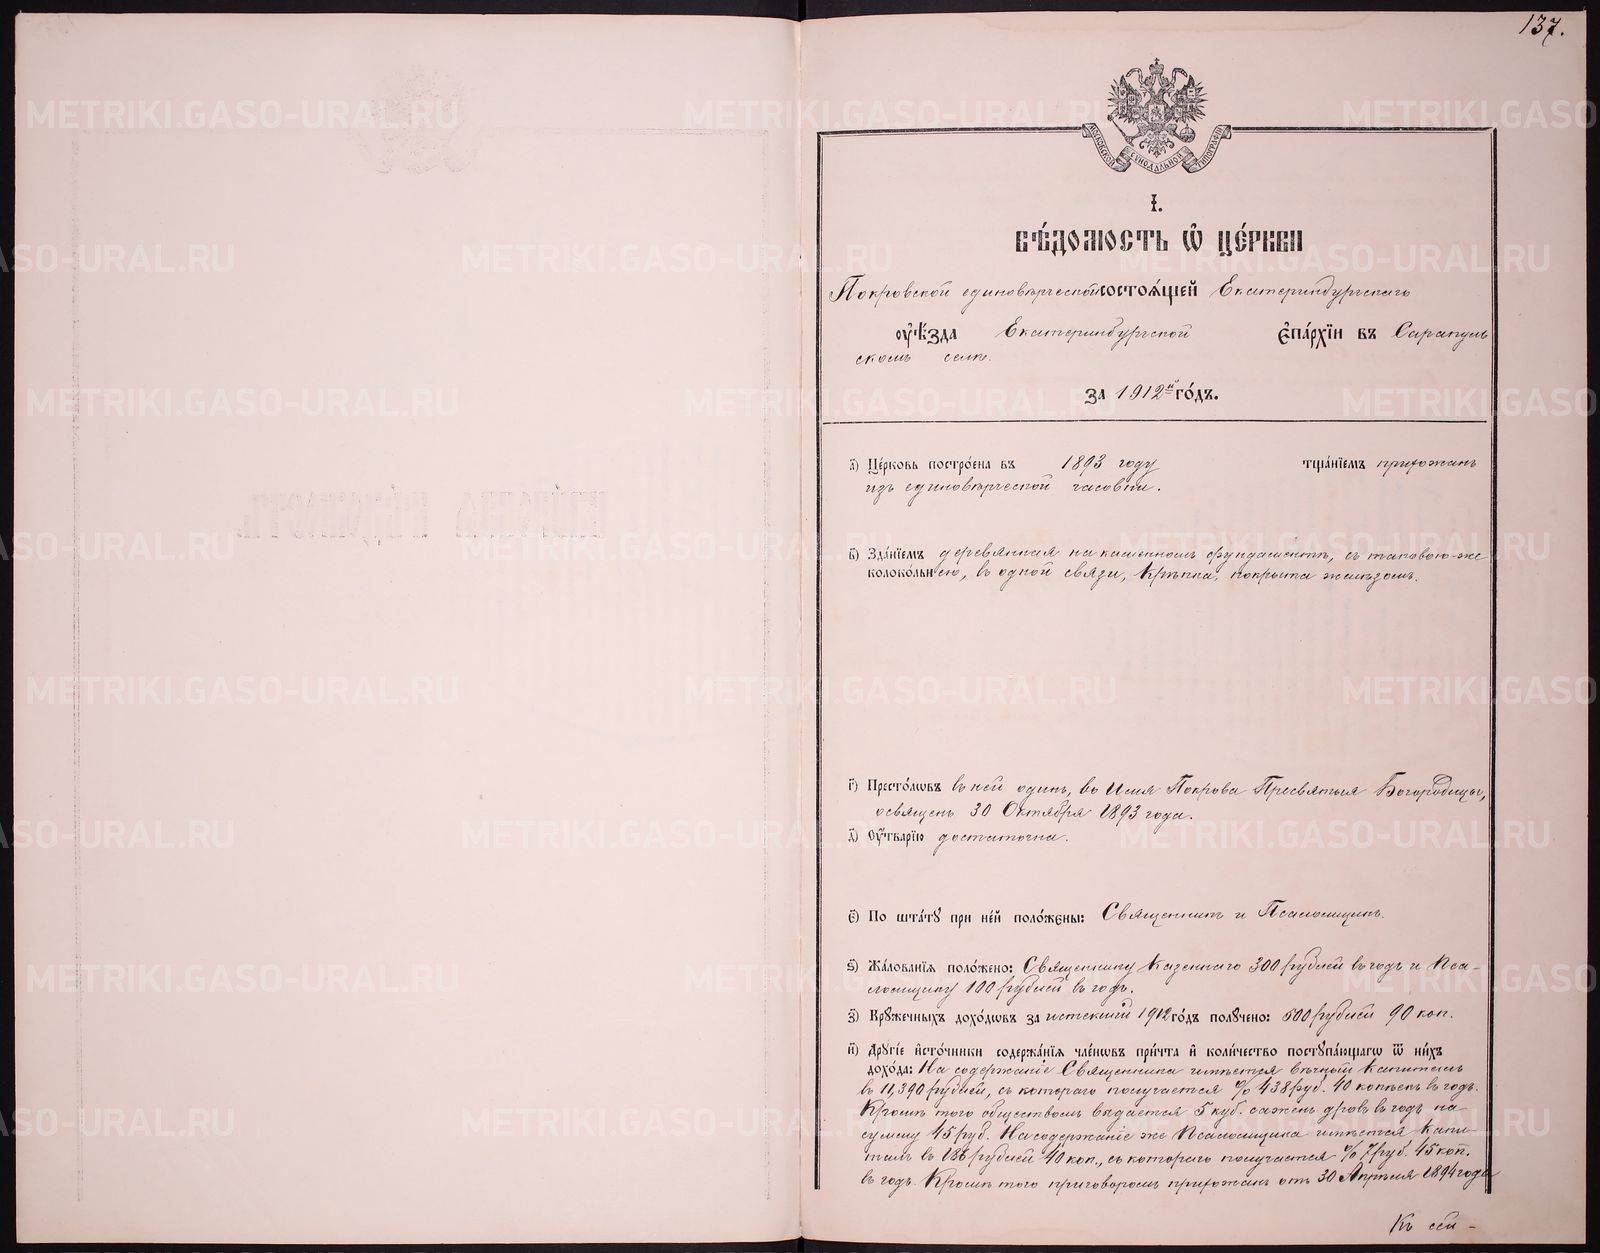 137.
МОСКОВСКОЙ СѴНОДАЛЬНОЙ ТИПОГРАФІИ
І.
ВѢ́ДОМОСТЬ Ѽ ЦЕ́РКВИ
Покровской единовѣрческой состоѧ́щей Екатеринбургскаго
ᲂу҆ѣ́зда Екатеринбургской є҆па́рхїи въ Сарапуль
скомъ селѣ.
за 1912й го́дъ.
а҃) Це́рковь постро́ена въ 1893 году тща́нїемъ прихожанъ
изъ единовѣрческой часовни.
в҃) Зда́нїемъ деревянная на каменномъ фундаментѣ, съ таковою-же
колоко́льнею, въ одной связи, крѣпка, покрыта желѣзомъ.
г҃) Престо́лѡвъ въ ней одинъ, во Имя Покрова Пресвятыя Богородицы,
освященъ 30 Октября 1893 года.
д҃) Оу҆́тварїю достаточна.
є҃) По шта́тꙋ при не́й поло́жены: Священникъ и Псаломщикъ.
ѕ҃) Жа́лованїѧ поло́жено: Священнику казеннаго 300 рублей въ годъ и Пса-
ломщику 100 рублей въ годъ.
з҃) Крꙋжечныхъ дохо́дѡвъ за истекшій 1912 го́дъ полꙋчено: 500 рублей 90 коп.
и҃) Дрꙋгі́е и҆сто́чники содержа́нїѧ чле́нѡвъ при́чта и҆ коли́чество постꙋпа́ющагѡ ѿ ни́хъ
дохо́да: На содержаніе Священника имѣется вѣчный капиталъ
въ 11,390 рублей, съ котораго получается % 438 руб. 40 копѣекъ въ годъ.
Кромѣ того обществомъ выдается 5 куб. саженъ дровъ въ годъ на
сумму 45 руб. На содержаніе же Псаломщика имѣется капи-
талъ въ рублей 40 коп., съ котораго получается % 7 руб. 45 коп.
въ годъ. Кромѣ того приговоромъ прихожанъ отъ 30 Апрѣля 1894 года
Къ сей -
КЛИРОВАѦ ВѢДОМОСТЬ
METRIKI.GASO-URAL.RU